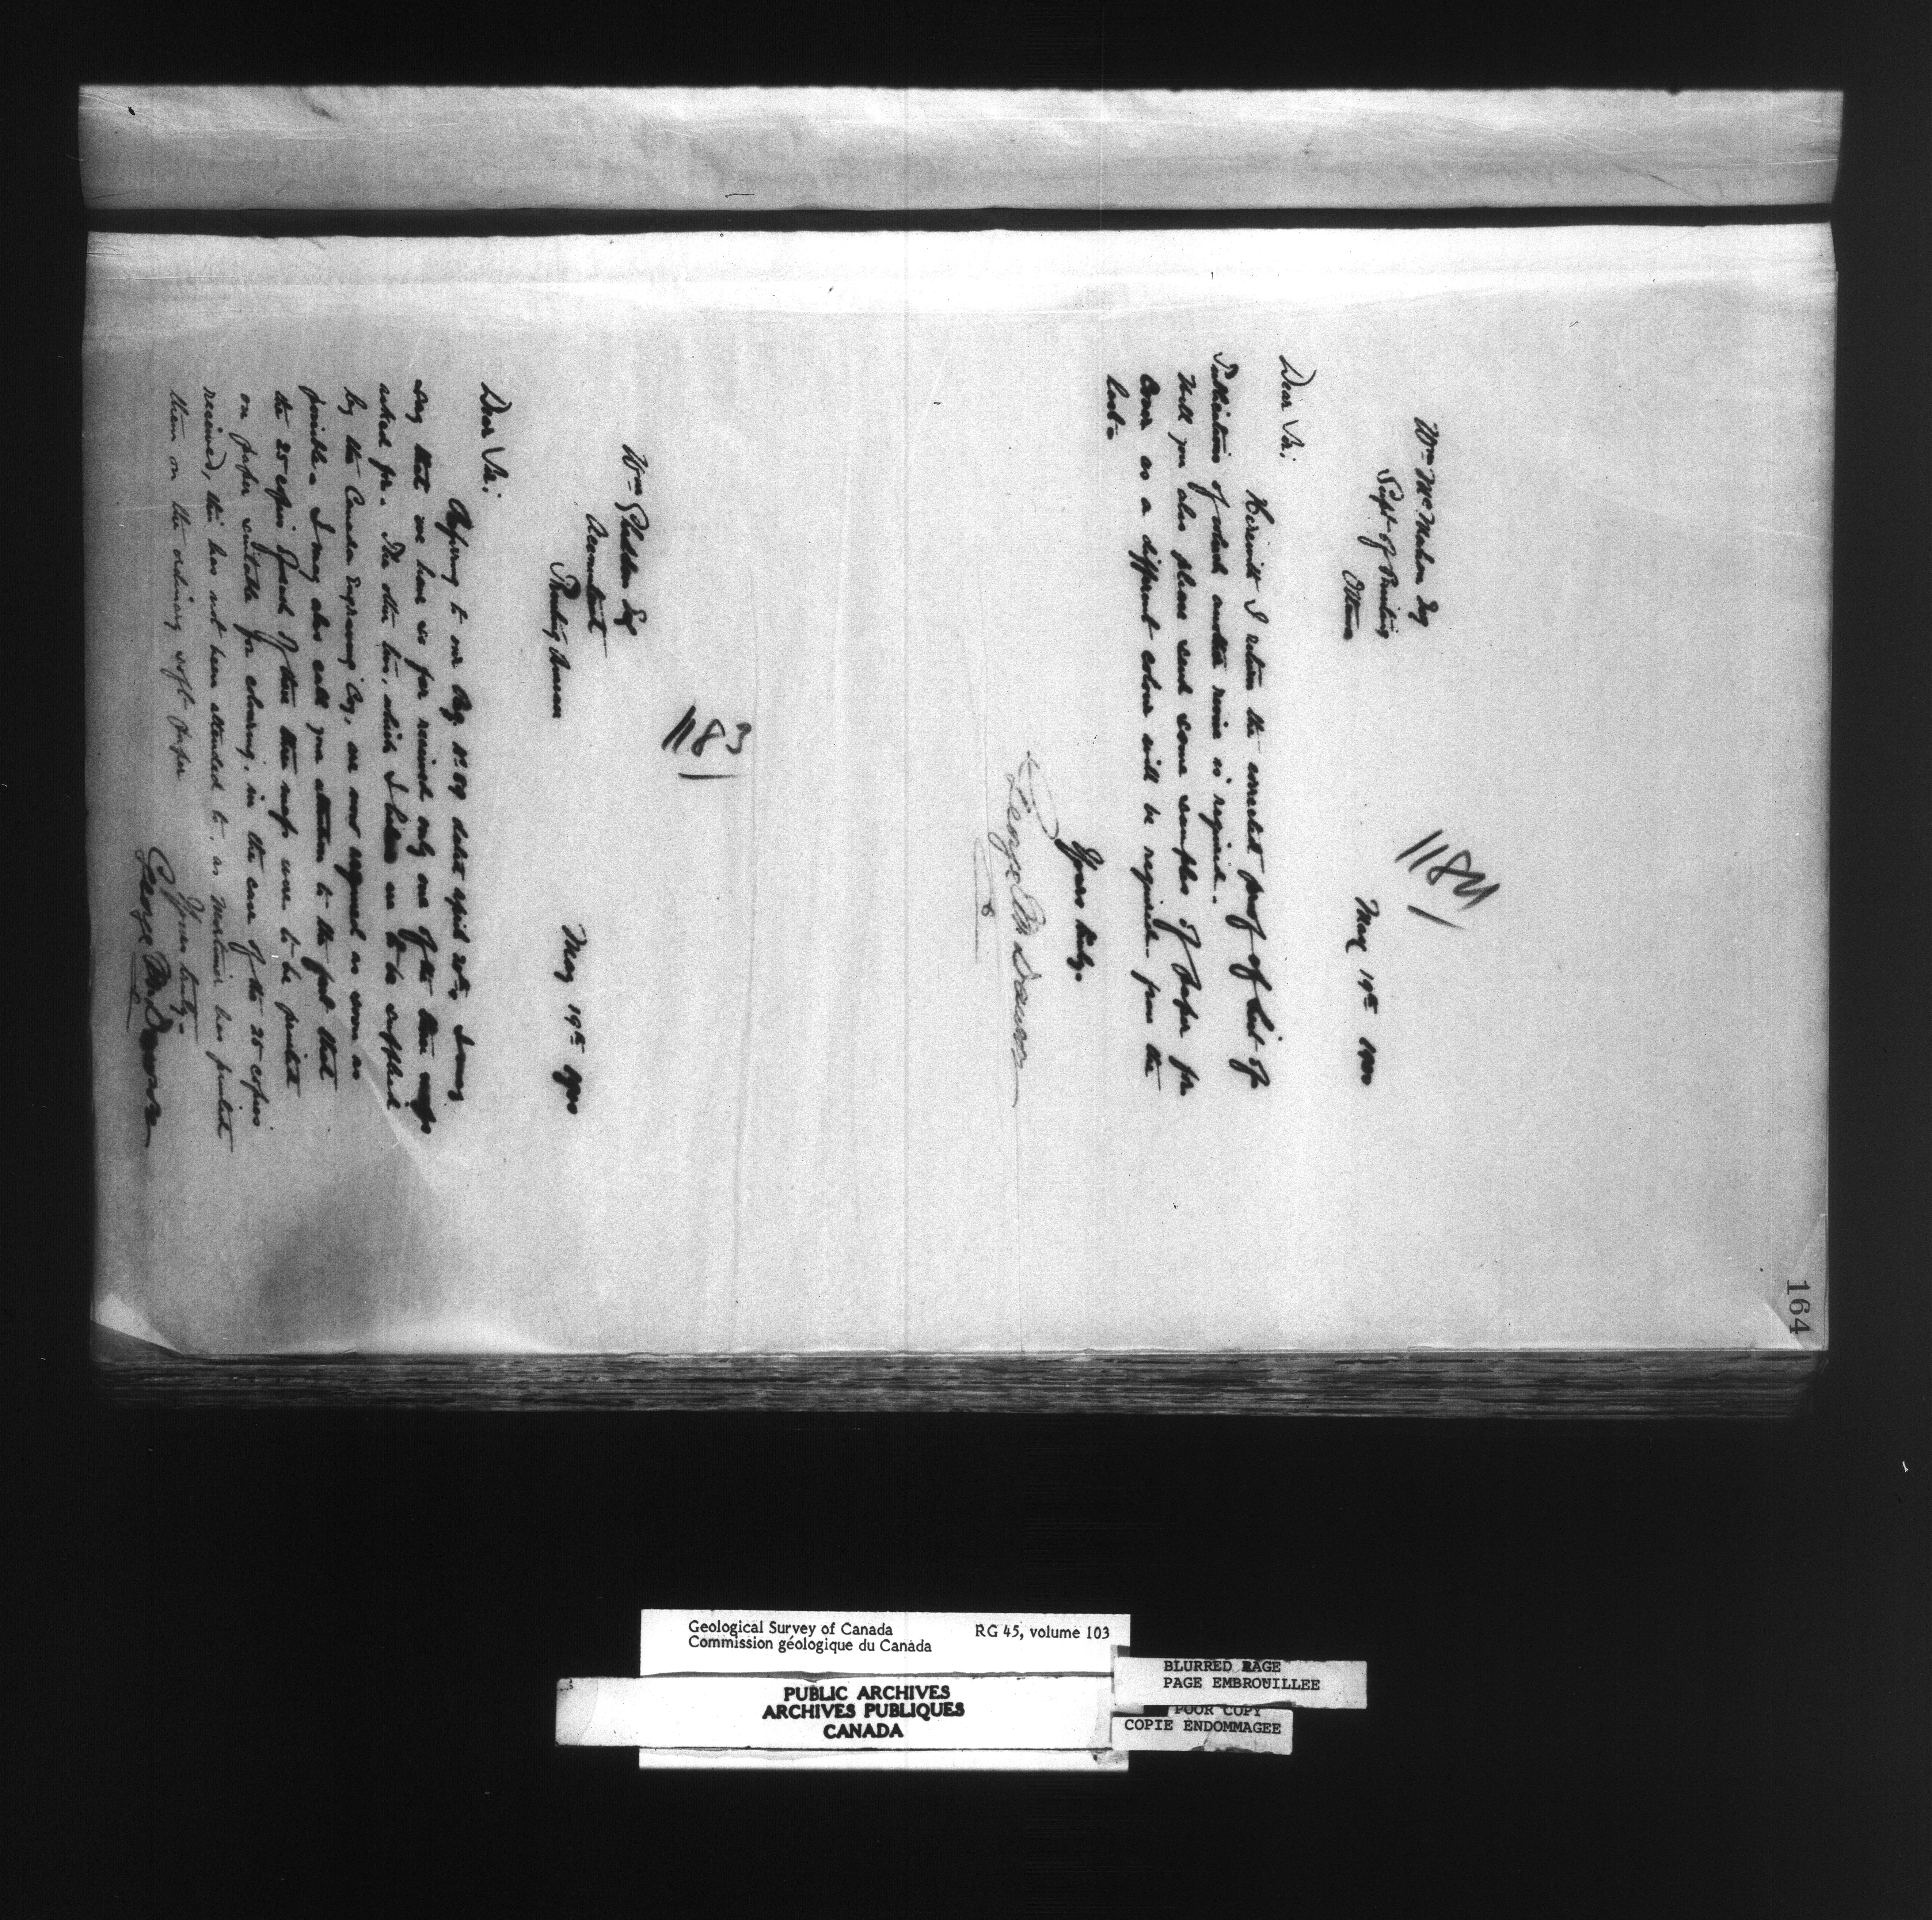 164
1184
May 19th 1900
Wm McMahon Esq
Supt of Printing
Ottawa
Dear Sir:
Herewith I return the corrected proof of List of
Publications of which another revise is required.
Will you also please send some samples of paper for
cover as a different colour will be required from the
last.
Yours truly.
George M Dawson
1183
May 19th 1900
Wm Gliddon Esq
Accountant
Printing Bureau
Dear Sir:
Referring to our Req. No. dated April 20th, I may
say that we have so far received only one of the three maps
asked for. The other two, which I believe are to be supplied
by the Canada Engraving Coy, are now required as soon as
possible. I may also call your attention to the fact that
the 25 copies of each of these three maps were to be printed
on paper suitable for colouring, in the case of the 25 copies
received, this has not been attended to, as Mortimer has printed
them on the ordinary soft paper
Yours truly.
George M Dawson
Geological Survey of Canada RG 45, volume 103
Commission géologique du Canada
PUBLIC ARCHIVES
ARCHIVES PUBLIQUES
CANADA
BLURRED PAGE
PAGE EMBROUILLEE
POOR COPY
COPIE ENDOMMAGEE